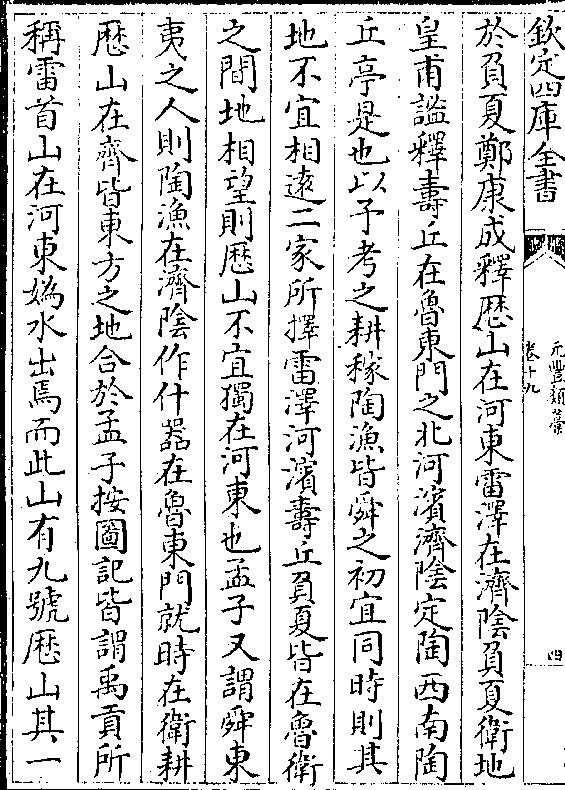 欽定四庫全書
元豐類藁
卷十九
四
於負夏鄭康成釋歴山在河東雷澤在濟陰負夏衛地
皇甫謐釋壽丘在魯東門之北河濱濟陰定陶西南陶
丘亭是也以予考之耕稼陶漁皆舜之初宜同時則其
地不宜相遠二家所釋雷澤河濱壽丘負夏皆在魯衛
之間地相望則歴山不宜獨在河東也孟子又謂舜東
夷之人則陶漁在濟陰作什器在魯東門就時在衛耕
歴山在齊皆東方之地合於孟子按圖記皆謂禹貢所
稱雷首山在河東媯水出焉而此山有九號歴山其一